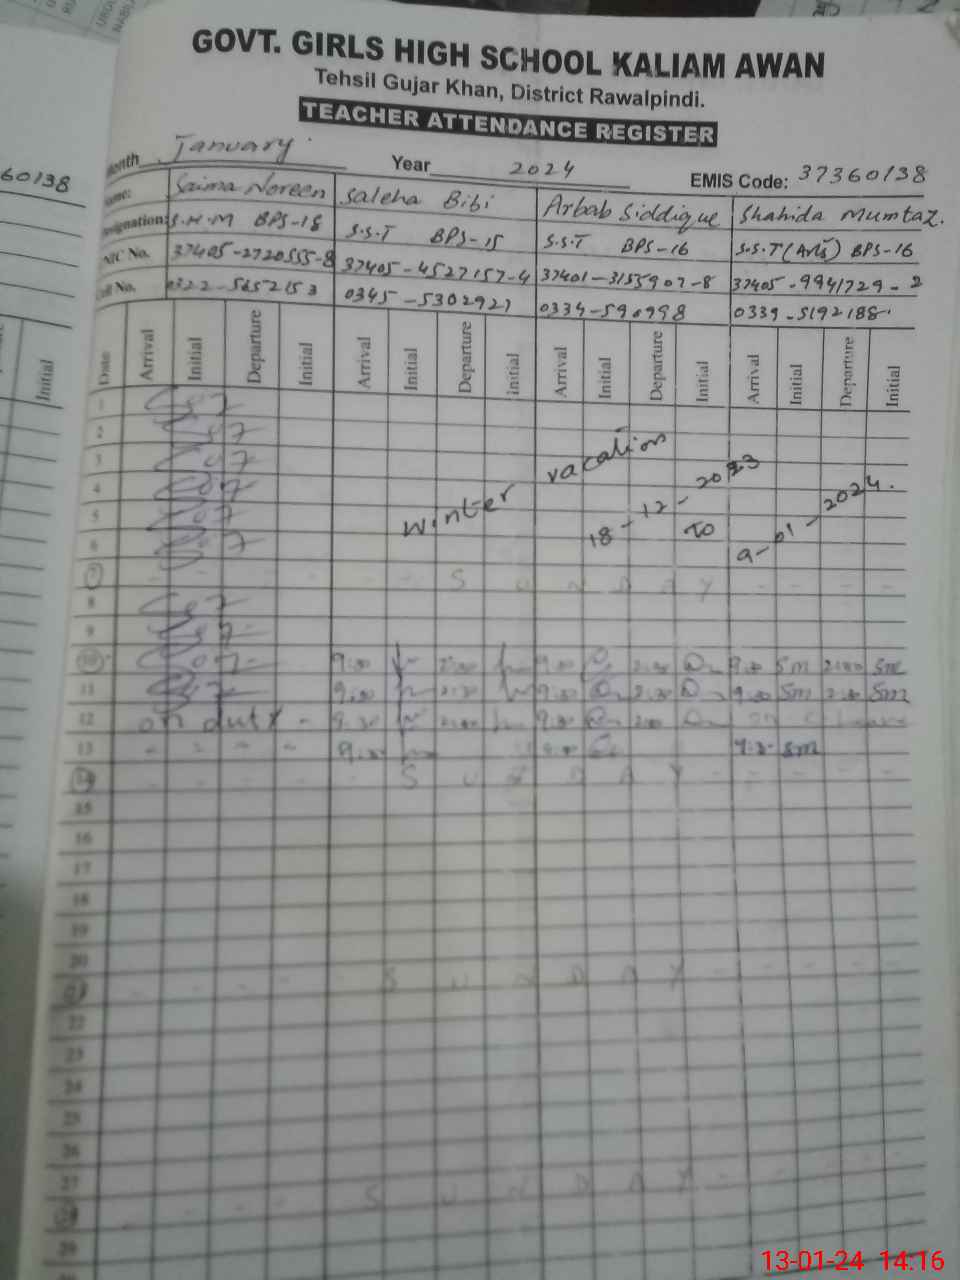 GOVT. GIRLS HIGH SCHOOL KALIAM AWAN
Tehsil Gujar Khan, District Rawalpindi.
TEACHER ATTENDANCE REGISTER
60138
Month January Year 2024 EMIS Code: 37360138
Name: Saima Noreen Saleha Bibi Arbab Siddique Shahida Mumtaz.
Designation: S.H.M BPS-18 S.S.T BPS-15 S.S.T BPS-16 S.S.T (Arts) BPS-16
NIC No. 37405-2720555-8 37405-4527157-4 37401-3155907-8 37405-9941729-2
Cell No. 0322-5652153 0345-5302921 0334-590998 0339-5192188
Initial Date Arrival Initial Departure Initial Arrival Initial Departure Initial Arrival Initial Departure Initial Arrival Initial Departure Initial
1
2
3
4
5
6
winter vacation 18-12-2023 To 9-01-2024.
7 SUNDAY
8
9
10 9:00 9:00 9:00 Sm 2:00 Sm
11 9:00 2:30 9:00 2:30 9:00 Sm 2:30 Sm
12 on duty 9:30 2:00 9:00 2:00
13 Sm
14 SUNDAY
15
16
17
18
19
20
21 SUNDAY
22
23
24
25
26
27
28 SUNDAY
29
13-01-24 14:16